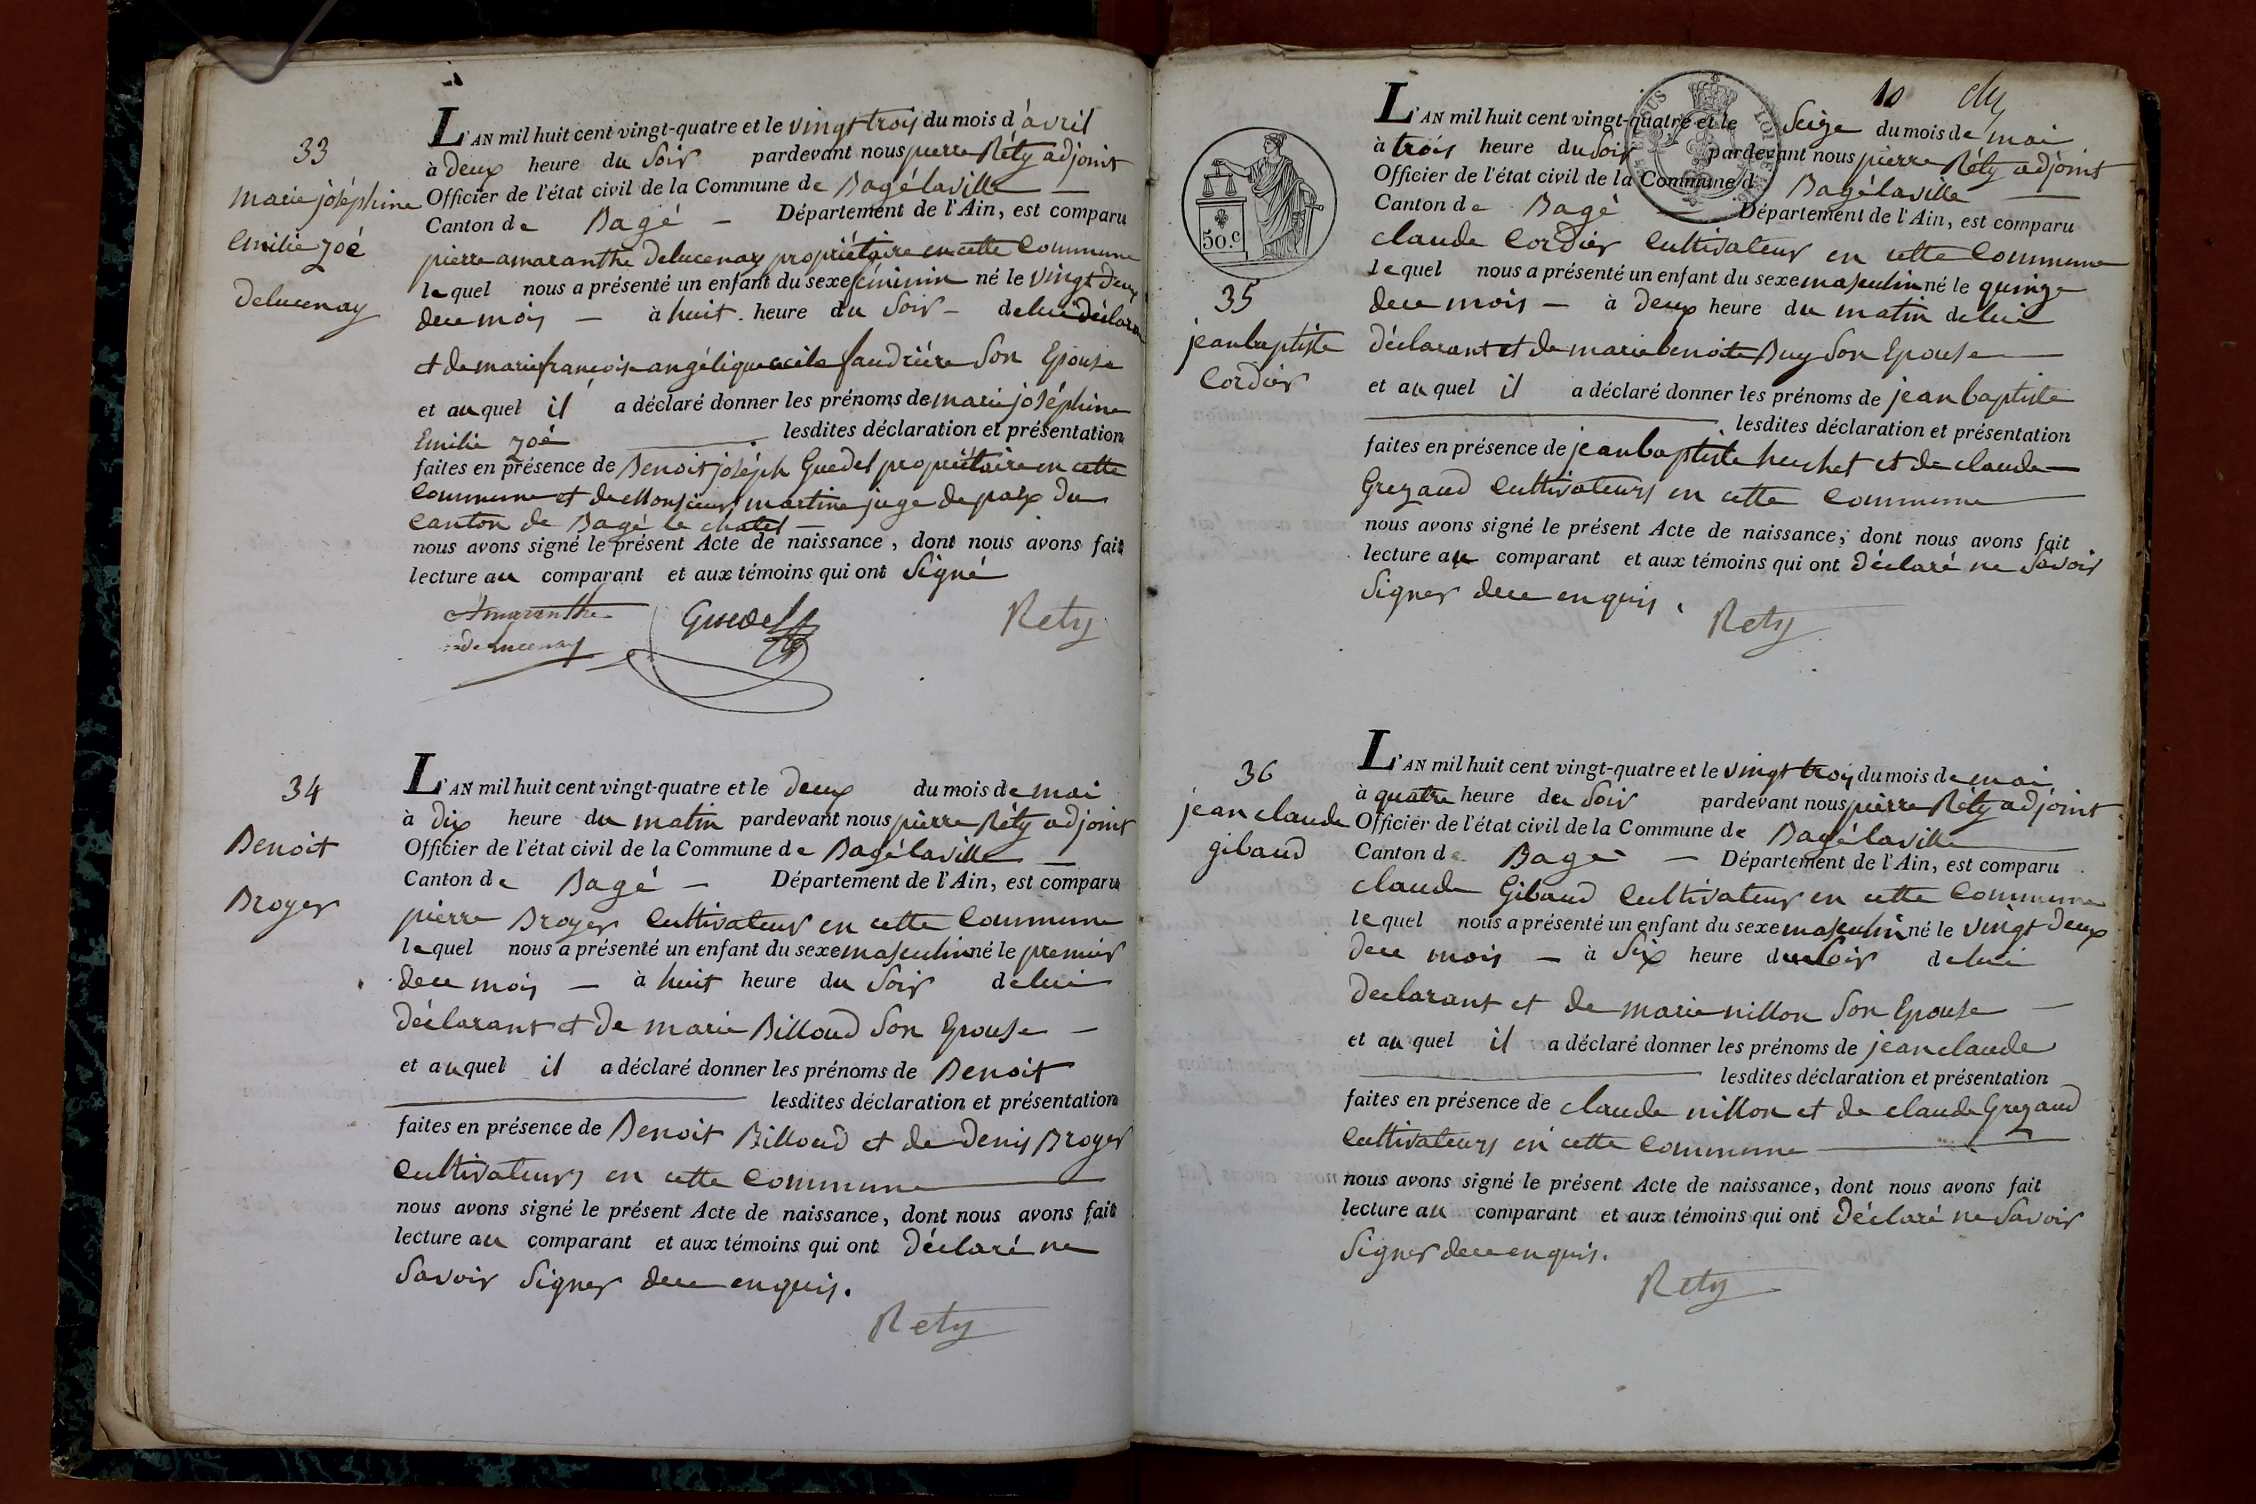 33
marie joséphine
Emilie zoé
Delucenay
L'AN mil huit cent vingt-quatre et le vingt troiy du mois d'avril
à deux heure du Soir pardevant nous pierre Réty adjoint
Officier de l'état civil de la Commune de Bagélaville
Canton de Bagé Département de l'Ain, est comparu
pierre amaranthe Delucenay propriétaire en cette Commune
lequel nous a présenté un enfant du sexe féminin né le vingt deux
dece mois à huit heure du Soir de lui déclarant
et de marie françoise angélique cecile faudriére Son Epouse
et auquel il a déclaré donner les prénoms de marie joséphine
Emilie zoé lesdites déclaration et présentation
faites en présence de Benoit joséph Guedel propriétaire en cette
Commune et de Monsieur martine juge de paix du
Canton de Bagé le chatel
nous avons signé le présent Acte de naissance, dont nous avons fait
lecture au comparant et aux témoins qui ont Signé
Amaranthe
Delucenay
Guedel
Rety
34
Benoit
Broyer
L'AN mil huit cent vingt-quatre et le deux du mois de mai
à dix heure du matin pardevant nous pierre Réty adjoint
Officier de l'état civil de la Commune de Bagélaville
Canton de Bagé Département de l'Ain, est comparu
pierre Broyer Cultivateur en cette Commune
lequel nous a présenté un enfant du sexe masculin né le premier
dece mois à huit heure du Soir de lui
déclarant et de marie Billoud Son Epouse
et auquel il a déclaré donner les prénoms de Benoit
lesdites déclaration et présentation
faites en présence de Benoit Billoud et de Denis Broyer
Cultivateurs en cette Commune
nous avons signé le présent Acte de naissance, dont nous avons fait
lecture au comparant et aux témoins qui ont déclaré ne
Savoir Signer dece enquis.
Rety
10
50.c
35
jean baptiste
Cordier
L'AN mil huit cent vingt-quatre et le Seize du mois de mai
à trois heure du soir pardevant nous pierre Réty adjoint
Officier de l'état civil de la Commune d Bagélaville
Canton de Bagé Département de l'Ain, est comparu
claude Cordier Cultivateur en cette Commune
lequel nous a présenté un enfant du sexe masculin né le quinze
dece mois à deux heure du matin de lui
déclarant et de marie benoite Buy Son Epouse
et auquel il a déclaré donner les prénoms de jean baptiste
lesdites déclaration et présentation
faites en présence de jean baptiste huchet et de claude
Grezaud Cultivateurs en cette Commune
nous avons signé le présent Acte de naissance, dont nous avons fait
lecture au comparant et aux témoins qui ont déclaré ne Savoir
Signer dece enquis.
Rety
36
jean claude
gibaud
L'AN mil huit cent vingt-quatre et le vingt troiy du mois de mai
à quatre heure du Soir pardevant nous pierre Réty adjoint
Officier de l'état civil de la Commune de Bagélaville
Canton de Bagé Département de l'Ain, est comparu
claude Gibaud Cultivateur en cette Commune
lequel nous a présenté un enfant du sexe masculin né le vingt deux
dece mois à Six heure du Soir de lui
declarant et de marie nillon Son Epouse
et auquel il a déclaré donner les prénoms de jean claude
lesdites déclaration et présentation
faites en présence de claude nillon et de claude Grezaud
Cultivateurs en cette Commune
nous avons signé le présent Acte de naissance, dont nous avons fait
lecture au comparant et aux témoins qui ont déclaré ne Savoir
Signer dece enquis.
Rety